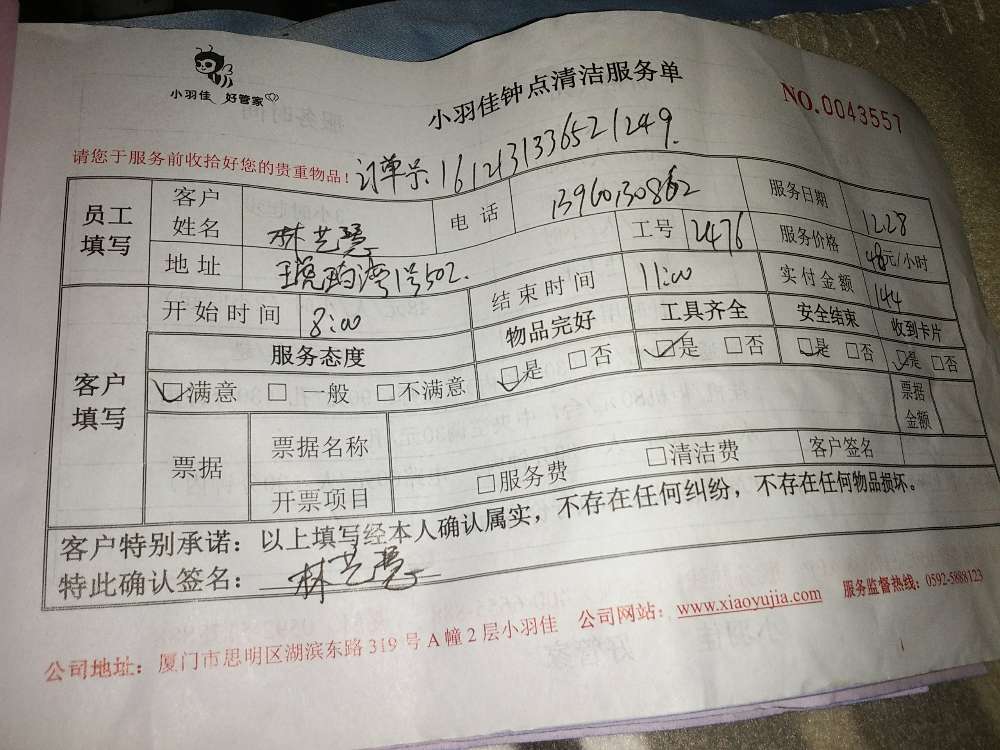 小羽佳 好管家
小羽佳钟点清洁服务单
NO.0043557
请您于服务前收拾好您的贵重物品！ 订单号 1612131336521249.
员工填写 客户姓名 林艺 电话 13960130862 服务日期 1228
地址 1号502. 工号 2476 服务价格 48元/小时
客户填写 开始时间 8:00 结束时间 11:00 实付金额 144
服务态度 物品完好 工具齐全 安全结束 收到卡片
☑满意 □一般 □不满意 ☑是 □否 ☑是 □否 ☑是 □否 ☑是 □否
票据 票据名称 票据金额
开票项目 □服务费 □清洁费 客户签名
客户特别承诺：以上填写经本人确认属实，不存在任何纠纷，不存在任何物品损坏。
特此确认签名： 林艺
公司地址：厦门市思明区湖滨东路 319 号 A 幢 2 层小羽佳 公司网站：www.xiaoyujia.com 服务监督热线：0592-5888123